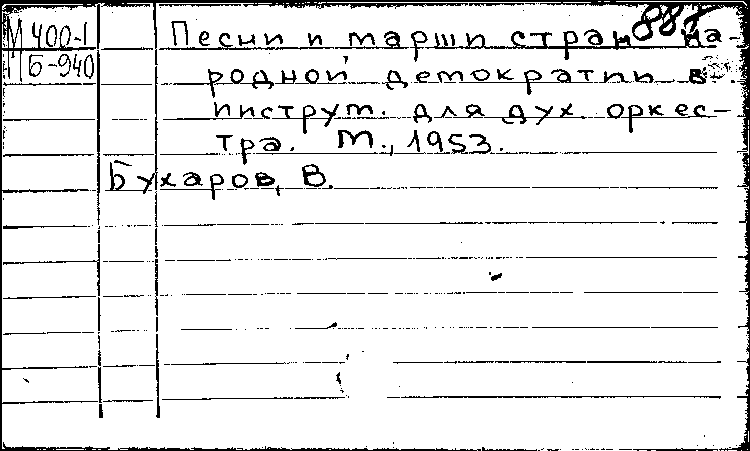 888
М 400-1 Песни и марши стран на-
Б-940 родной демократии в
инструт. для дух. оркес-
тра. М., 1953.
Бухаров, В.